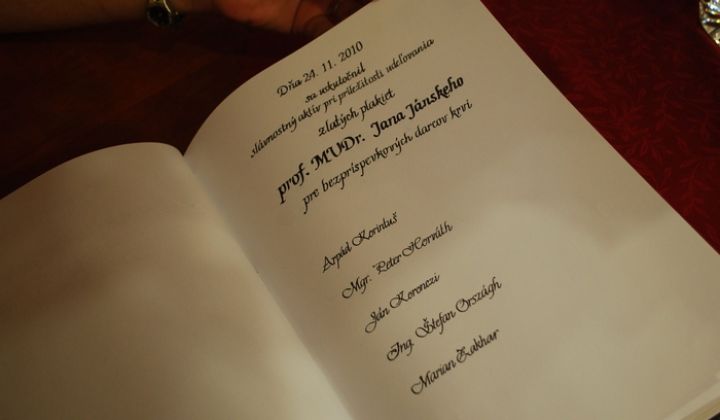 Dňa 24. 11. 2010
sa uskutočnil
slávnostný aktív pri príležitosti udeľovania
zlatých plakiet
prof. MUDr. Jana Jánskeho
pre bezpríspevkových darcov krvi
Arpád Korintuš
Mgr. Peter Horváth
Ján Koronczi
Ing. Štefan Országh
Marian Zakhar